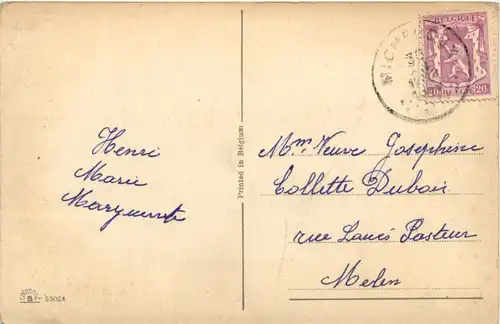 BELGIQUE
20 BELGIE 20
Henri
Marie
Marguerite
Printed in Belgium
Mme Veuve Josephine
Collette Dubois
rue Louis Pasteur
Melen